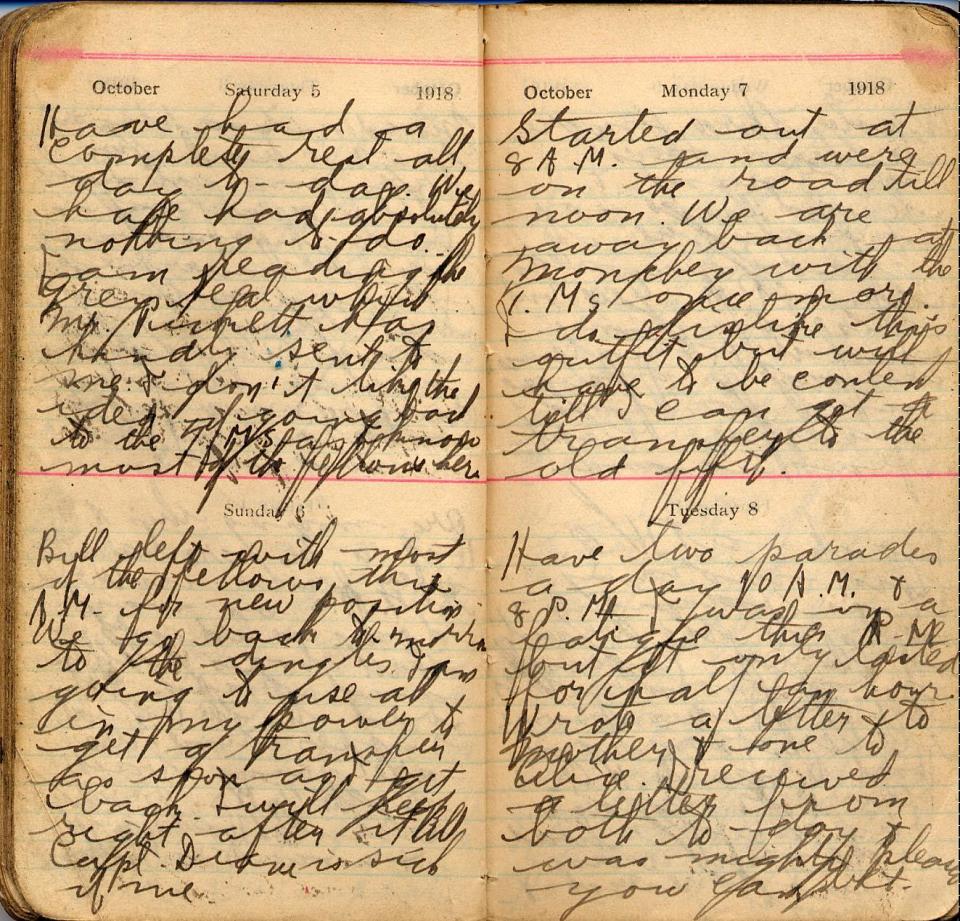 October Saturday 5 1918
Have had a
complete rest all
day to-day. We
have had absolutely
nothing to do.
I am reading the
grey seal which
Mr. has
handy sent to
me I don't like the
idea of going back
to the T.M.s as I know
most of the fellows here.
Sunday 6
Bill left with most
of the fellows this
A.M. for new position.
We go back to-morrow
to the dingles I am
going to use all
in my power to
get a transfer
as soon as I get
back. I will keep
right after it till
Capt. is sick
of me
October Monday 7 1918
Started out at
8 A.M. and were
on the road till
noon. We are
away back at
with the
T.Ms once more.
I do dislike this
outfit but will
have to be content
till I can get a
transfer to the
old fifty.
Tuesday 8
Have two parades
a day 10 A.M. &
8 P.M. I was on a
fatigue this P.M.
but it only lasted
for half an hour.
Wrote a letter to
Mother & one to
Olive. I received
a letter from
both to-day &
was mighty pleased
you can bet.